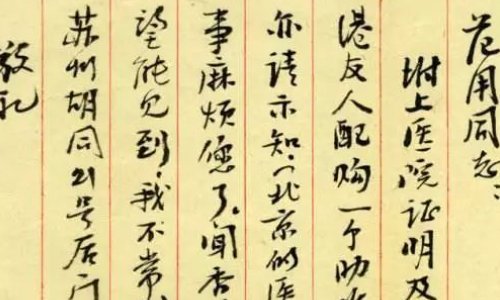 范用同志：
附上医院证明及
港友人配购一个助
亦请示知。（北京的医
事麻烦您了。闻香
望能见到，我不常
苏州胡同21号后门
敬礼